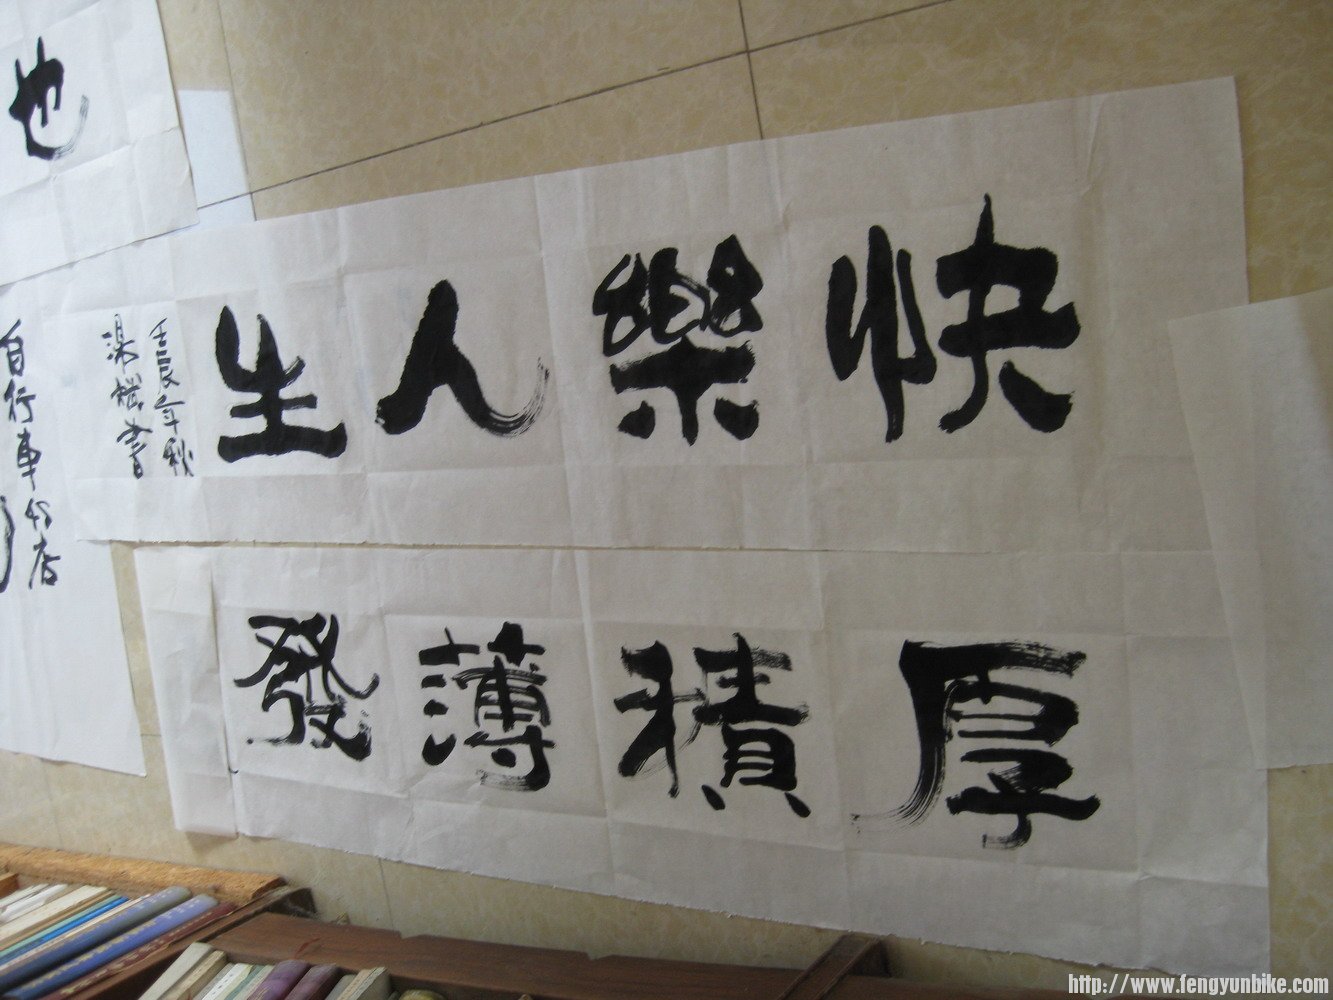 快樂人生
壬辰年秋
書
厚積薄發
也
自行車店
http://www.fengyunbike.com